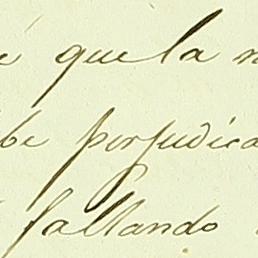 que la
perjudica
fallando